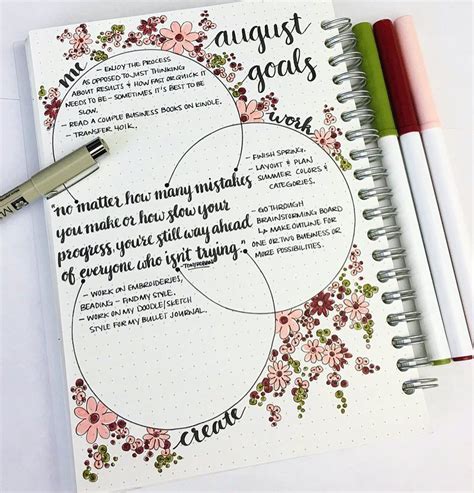 august
goals
me
- ENJOY THE PROCESS
AS OPPOSED TO JUST THINKING
ABOUT RESULTS & HOW FAST OR QUICK IT
NEEDS TO BE - SOMETIMES IT'S BEST TO
BE SLOW.
- READ A COUPLE BUSINESS BOOKS ON KINDLE.
- TRANSFER 401K.
work
- FINISH SPRING.
- LAYOUT & PLAN
SUMMER COLORS &
CATEGORIES.
- GO THROUGH
BRAINSTORMING BOARD
↳ MAKE OUTLINE FOR
ONE OR TWO BUSINESS OR
MORE POSSIBILITIES.
"no matter how many mistakes
you make or how slow your
progress, you're still way ahead
of everyone who isn't trying."
- TONY ROBBINS
- WORK ON EMBROIDERIES,
BEADING - FIND MY STYLE.
- WORK ON MY DOODLE/SKETCH
STYLE FOR MY BULLET JOURNAL.
create